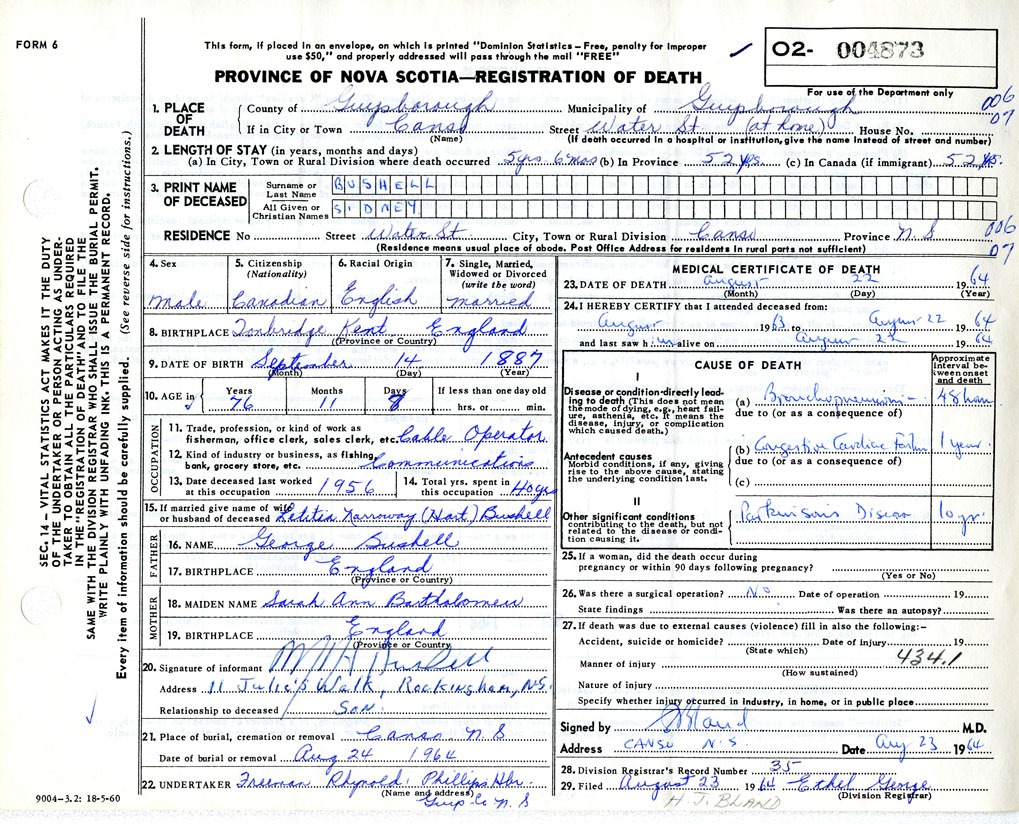 FORM 6
This form, if placed in an envelope, on which is printed "Dominion Statistics – Free, penalty for improper
use $50," and properly addressed will pass through the mail "FREE"
PROVINCE OF NOVA SCOTIA—REGISTRATION OF DEATH
02- 004873
For use of the Department only
1. PLACE OF DEATH
County of Guysborough Municipality of Guysborough 006
If in City or Town Canso Street Water St. (at home) House No. 07
(Name) (If death occurred in a hospital or institution, give the name instead of street and number)
2. LENGTH OF STAY (in years, months and days)
(a) In City, Town or Rural Division where death occurred 5 yrs 6 mos (b) In Province 52 yrs (c) In Canada (if immigrant) 52 yrs.
3. PRINT NAME OF DECEASED
Surname or Last Name BUSHELL
All Given or Christian Names SIDNEY
RESIDENCE No Street Water St City, Town or Rural Division Canso Province N.S 006
07
(Residence means usual place of abode. Post Office Address for residents in rural parts not sufficient)
4. Sex
Male
5. Citizenship
(Nationality)
Canadian
6. Racial Origin
English
7. Single, Married, Widowed or Divorced
(write the word)
married
8. BIRTHPLACE Tonbridge Kent, England
(Province or Country)
9. DATE OF BIRTH September 14 1887
(Month) (Day) (Year)
10. AGE in
Years Months Days If less than one day old
76 11 8 hrs. or min.
OCCUPATION
11. Trade, profession, or kind of work as
fisherman, office clerk, sales clerk, etc. Cable Operator
12. Kind of industry or business, as fishing,
bank, grocery store, etc. Communications
13. Date deceased last worked
at this occupation 1956
14. Total yrs. spent in
this occupation 40 yrs
15. If married give name of wife
or husband of deceased Letitia Narroway (Hart) Bushell
FATHER
16. NAME George Bushell
17. BIRTHPLACE England
(Province or Country)
MOTHER
18. MAIDEN NAME Sarah Ann Bartholomew
19. BIRTHPLACE England
(Province or Country)
20. Signature of informant Bushell
Address 11 Julie's Walk, Rockingham, N.S.
Relationship to deceased Son.
21. Place of burial, cremation or removal Canso N.S
Date of burial or removal Aug 24 1964
22. UNDERTAKER Freeman Phillips Hbr.
(Name and address)
Guys Co N.S
MEDICAL CERTIFICATE OF DEATH
23. DATE OF DEATH August 22 1964
(Month) (Day) (Year)
24. I HEREBY CERTIFY that I attended deceased from:
August 1963 to August 22 1964
and last saw him alive on August 22 1964
CAUSE OF DEATH
Approximate interval between onset and death
I
Disease or condition directly leading to death (This does not mean
the mode of dying, e.g., heart failure, asthenia, etc. It means the
disease, injury, or complication
which caused death.)
(a) Bronchopneumonia 48 hours
due to (or as a consequence of)
Antecedent causes
Morbid conditions, if any, giving
rise to the above cause, stating
the underlying condition last.
(b) Congestive Cardiac Failure 1 year.
due to (or as a consequence of)
(c)
II
Other significant conditions
contributing to the death, but not
related to the disease or condition causing it.
Parkinsons Disease 10 yr.
25. If a woman, did the death occur during
pregnancy or within 90 days following pregnancy?
(Yes or No)
26. Was there a surgical operation? No Date of operation 19
State findings Was there an autopsy?
27. If death was due to external causes (violence) fill in also the following:–
Accident, suicide or homicide? Date of injury 19
(State which)
434.1
Manner of injury
(How sustained)
Nature of injury
Specify whether injury occurred in industry, in home, or in public place
Signed by Bland M.D.
Address CANSO N.S. Date Aug 23 1964
28. Division Registrar's Record Number 35
29. Filed August 23 1964 Ethel George
(Division Registrar)
H. J. BLAND
SEC. 14 – VITAL STATISTICS ACT MAKES IT THE DUTY
OF THE UNDERTAKER OR PERSON ACTING AS UNDER-
TAKER TO OBTAIN ALL THE PARTICULARS REQUIRED
IN THE "REGISTRATION OF DEATH" AND TO FILE THE
SAME WITH THE DIVISION REGISTRAR WHO SHALL ISSUE THE BURIAL PERMIT.
WRITE PLAINLY WITH UNFADING INK. THIS IS A PERMANENT RECORD.
Every item of information should be carefully supplied. (See reverse side for instructions.)
9004-3.2: 18-5-60